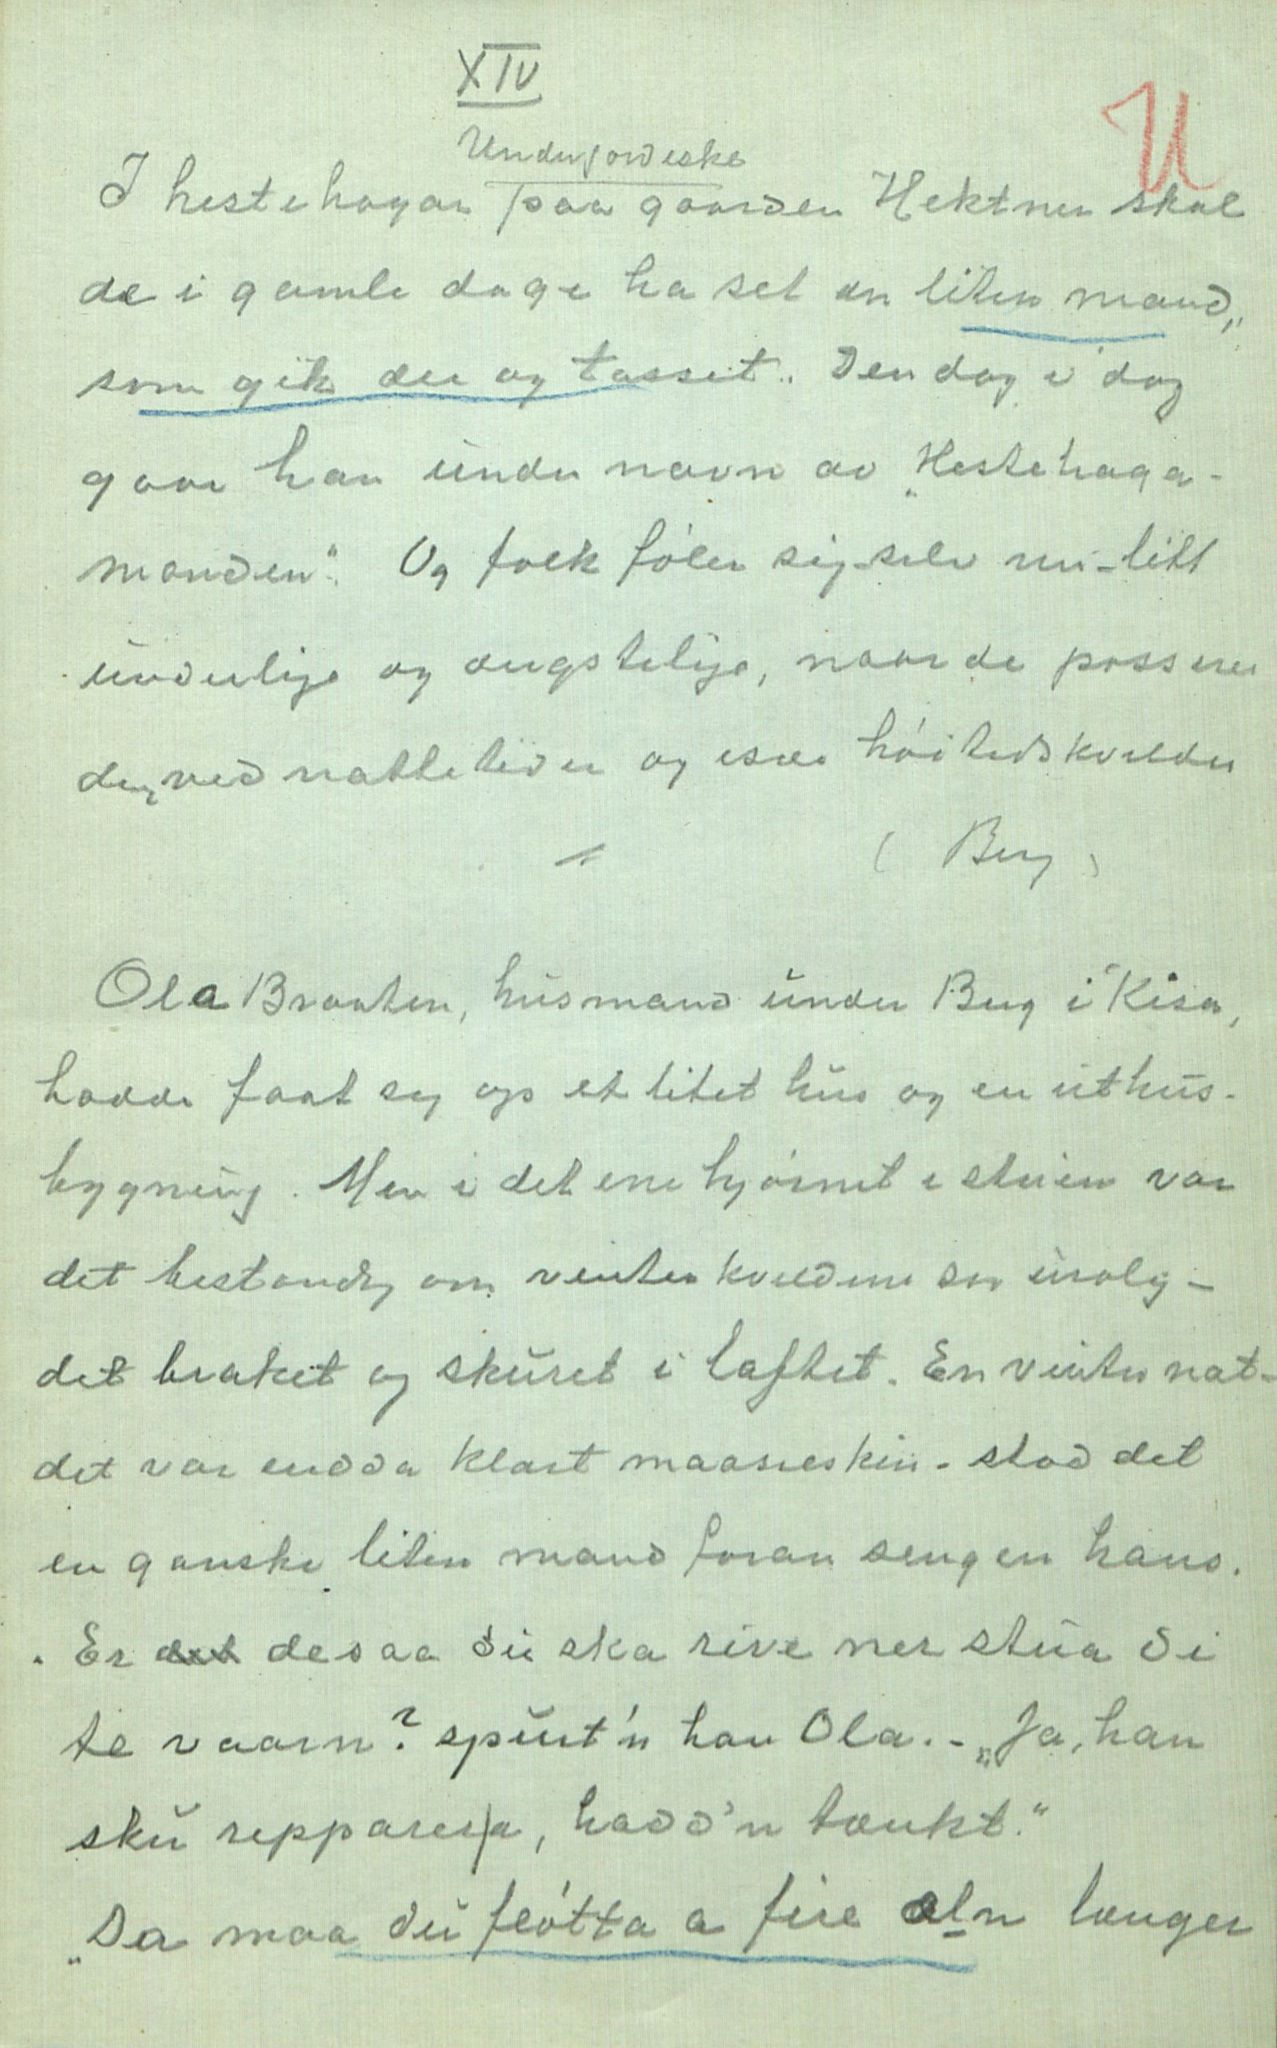 XIV
U
Underjordiske
I hestehagan paa gaarden Hektner skal
de i gamle dage ha set en liten mand,
som gik der og tasset. Den dag i dag
gaar han under navn av „Hestehaga-
manden“. Og folk føler sig selv nu litt
underlige og ængstelige, naar de passerer
der, ved nattetider og især høitidskvelder
( Berg )
Ola Braaten, husmand under Berg i Kisa,
hadde faat seg op et litet hus og en uthus-
bygning. Men i det ene hjørnet i stuen var
det bestandig om vinterkveldene saa urolig -
det braket og skuret i laftet. En vinternat -
det var endda klart maaneskin - stod det
en ganske liten mand foran sengen hans.
„Er det de saa du ska rive ner stua di
te vaarn? spurt'n han Ola. - „Ja, han
sku repparera, hadd'n tænkt.“
„Da maa du fløtta a fire aln længer